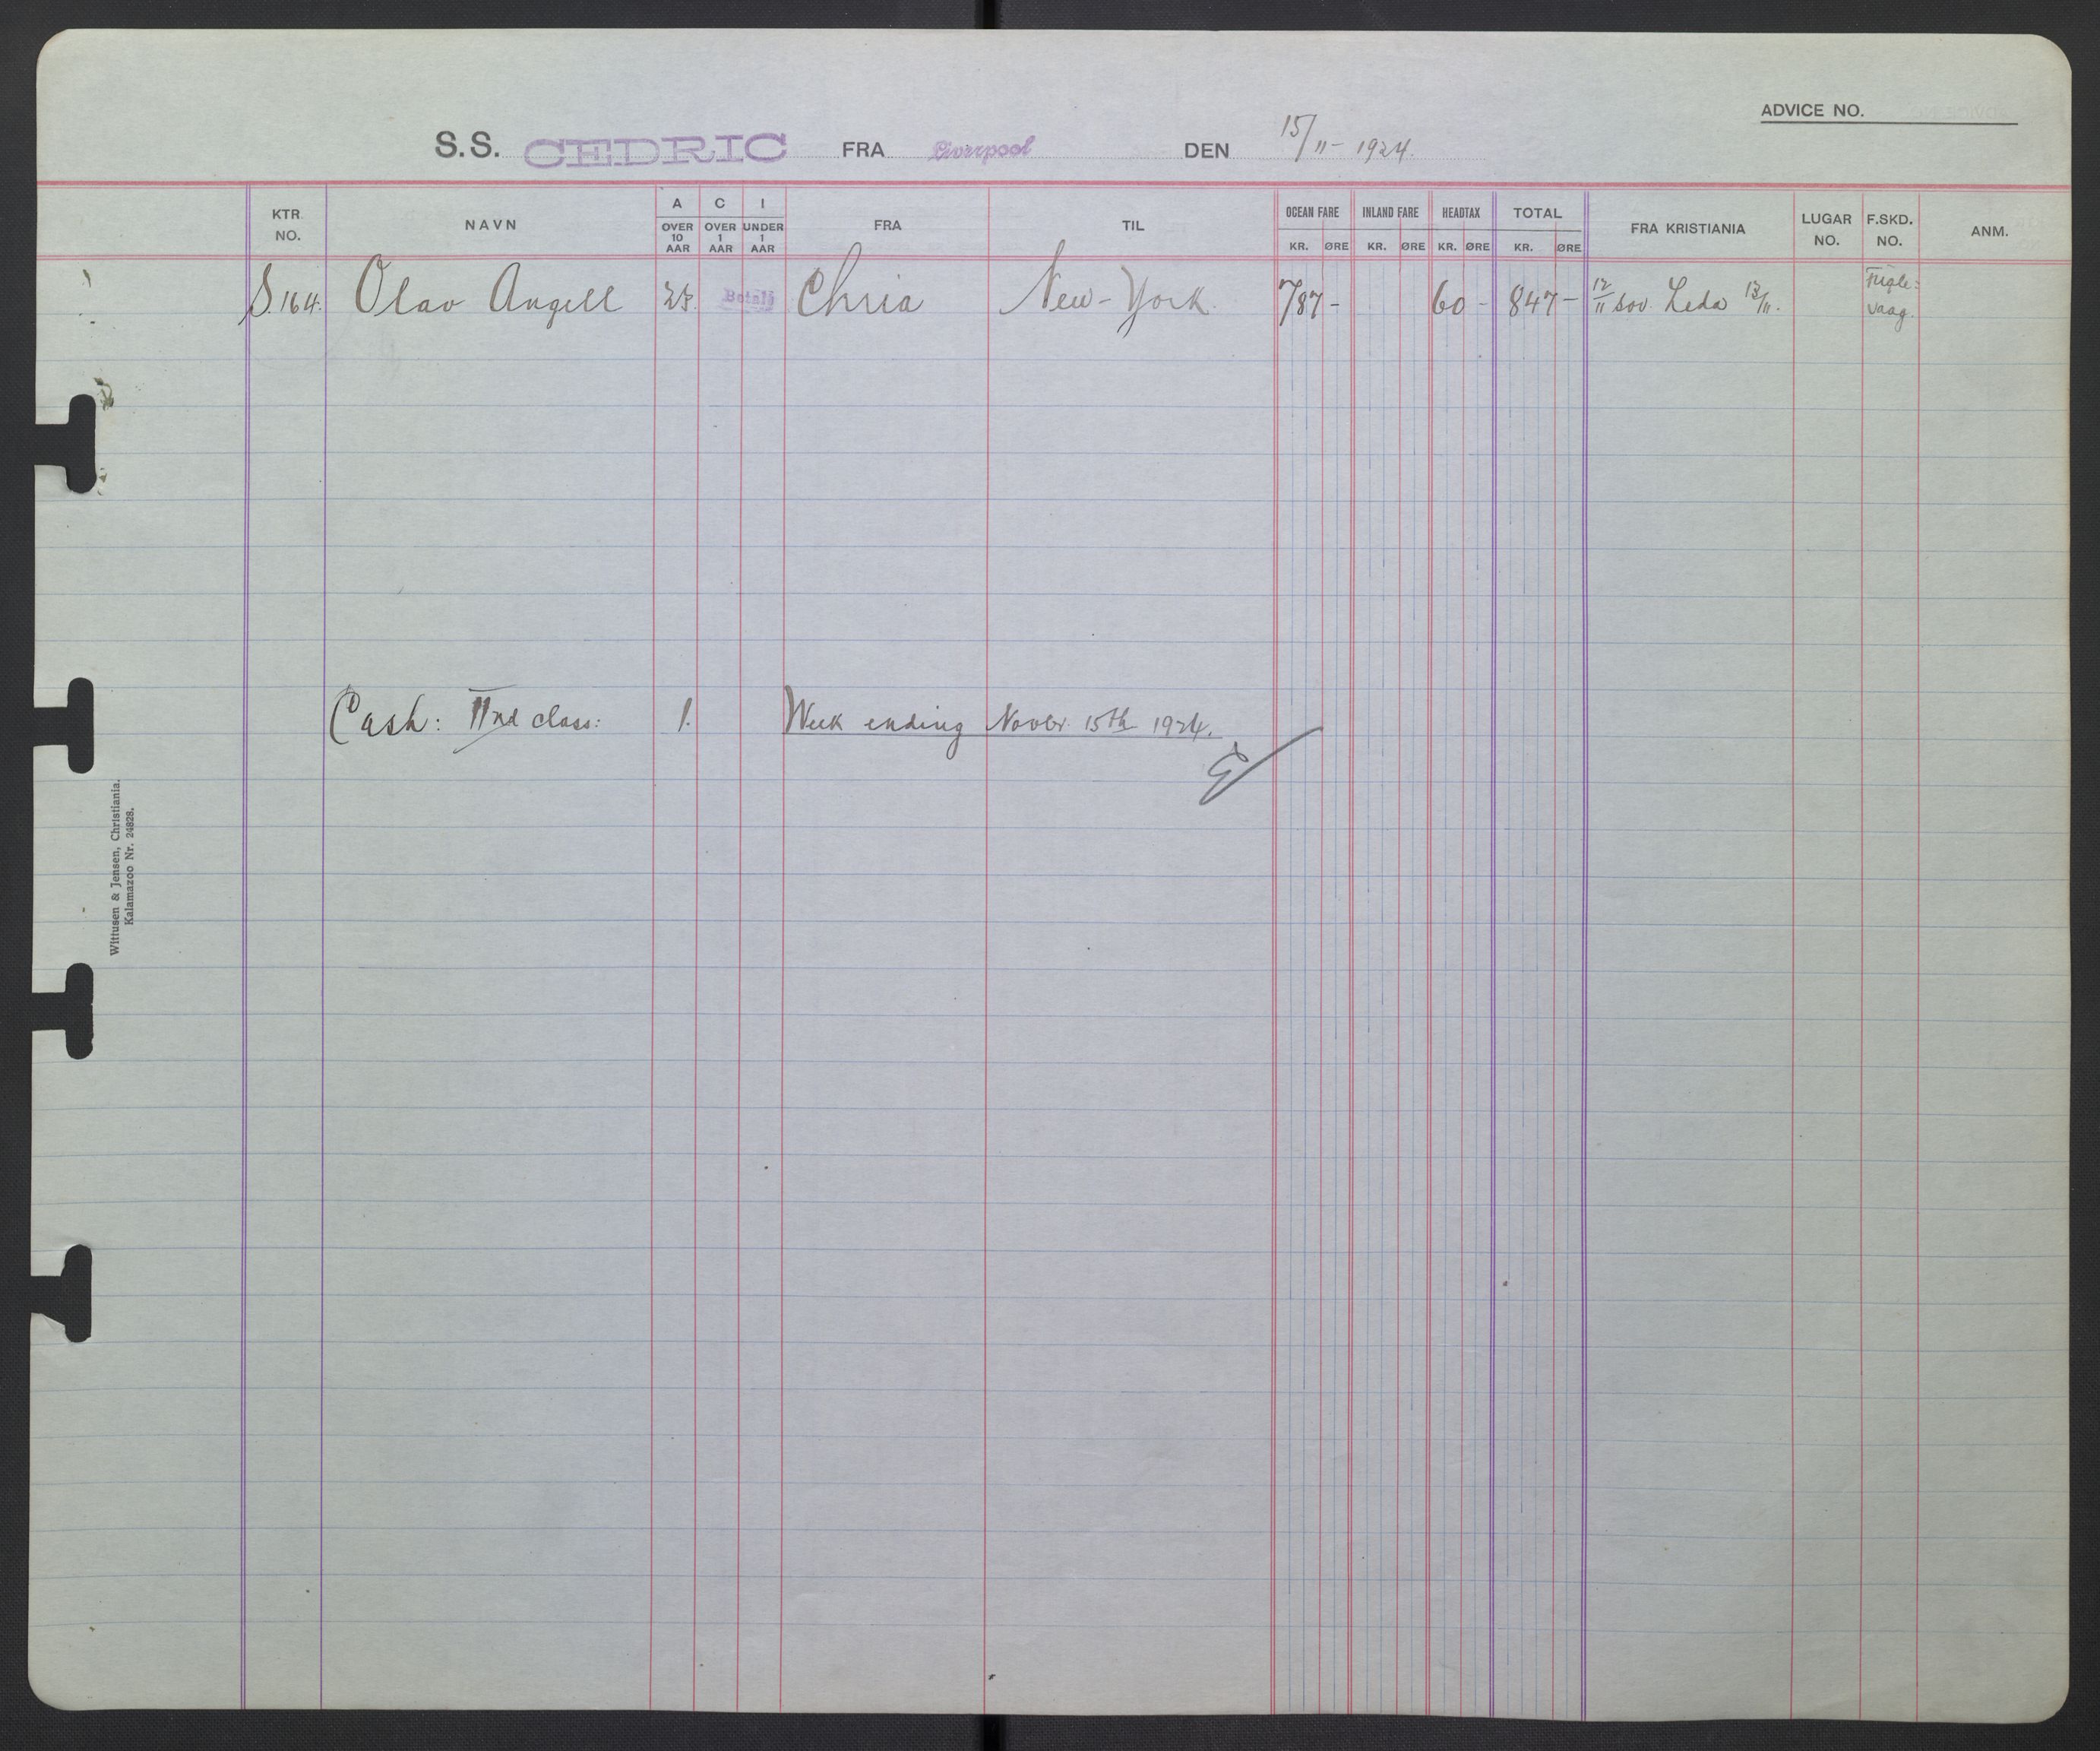 ADVICE NO.
S.S. CEDRIC FRA Liverpool DEN 15/11- 1924.
KTR. NO. NAVN A OVER 10 AAR C OVER 1 AAR I UNDER 1 AAR FRA TIL OCEAN FARE KR. ØRE INLAND FARE KR. ØRE HEADTAX KR. ØRE TOTAL KR. ØRE FRA KRISTIANIA LUGAR NO. F.SKD. NO. ANM.
S.164. Olav Angell Betalt Chria New-York. 787- 60- 847- 12/11 sov. Leda 13/11. Fugle: vaag.
Cash: IInd class: 1. Week ending Novbr. 15th 1924.
Wittusen & Jensen, Christiania.
Kalamazoo Nr. 24828.